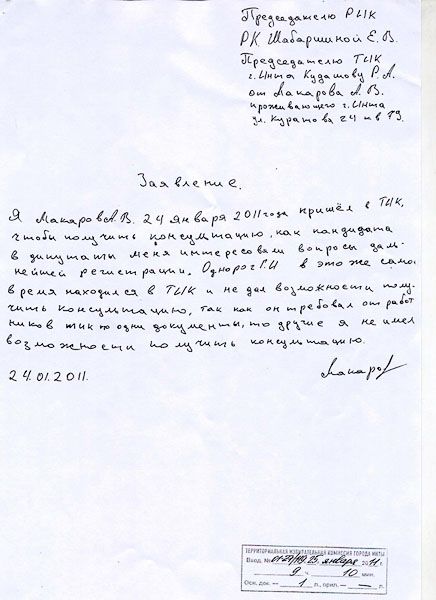 Председателю РИК
РК Шабаршиной Е.В.
Председателю ТИК
г. Инта Кудашову Р.А.
от Макарова А.В.
проживающего г. Инта
ул. Куратова 24 кв 79.
Заявление.
Я Макаров А.В. 24 января 2011 года пришёл в ТИК,
чтобы получить консультацию, как кандидата
в дипутаты меня интересовали вопросы даль-
нейшей регистрации. Однорог Г.И в это же само
время находился в ТИК и не дал возможности полу-
чить консультацию, так как он требовал от работ
ников ТИК то одни документы, то другие я не имел
возможности получить консультацию.
24.01.2011.
Макаров
ТЕРРИТОРИАЛЬНАЯ ИЗБИРАТЕЛЬНАЯ КОМИССИЯ ГОРОДА ИНТЫ
Вход. № 25 января 2011 г.
9 ч. 10 мин.
Осн. док. — 1 л., прил. — — л.